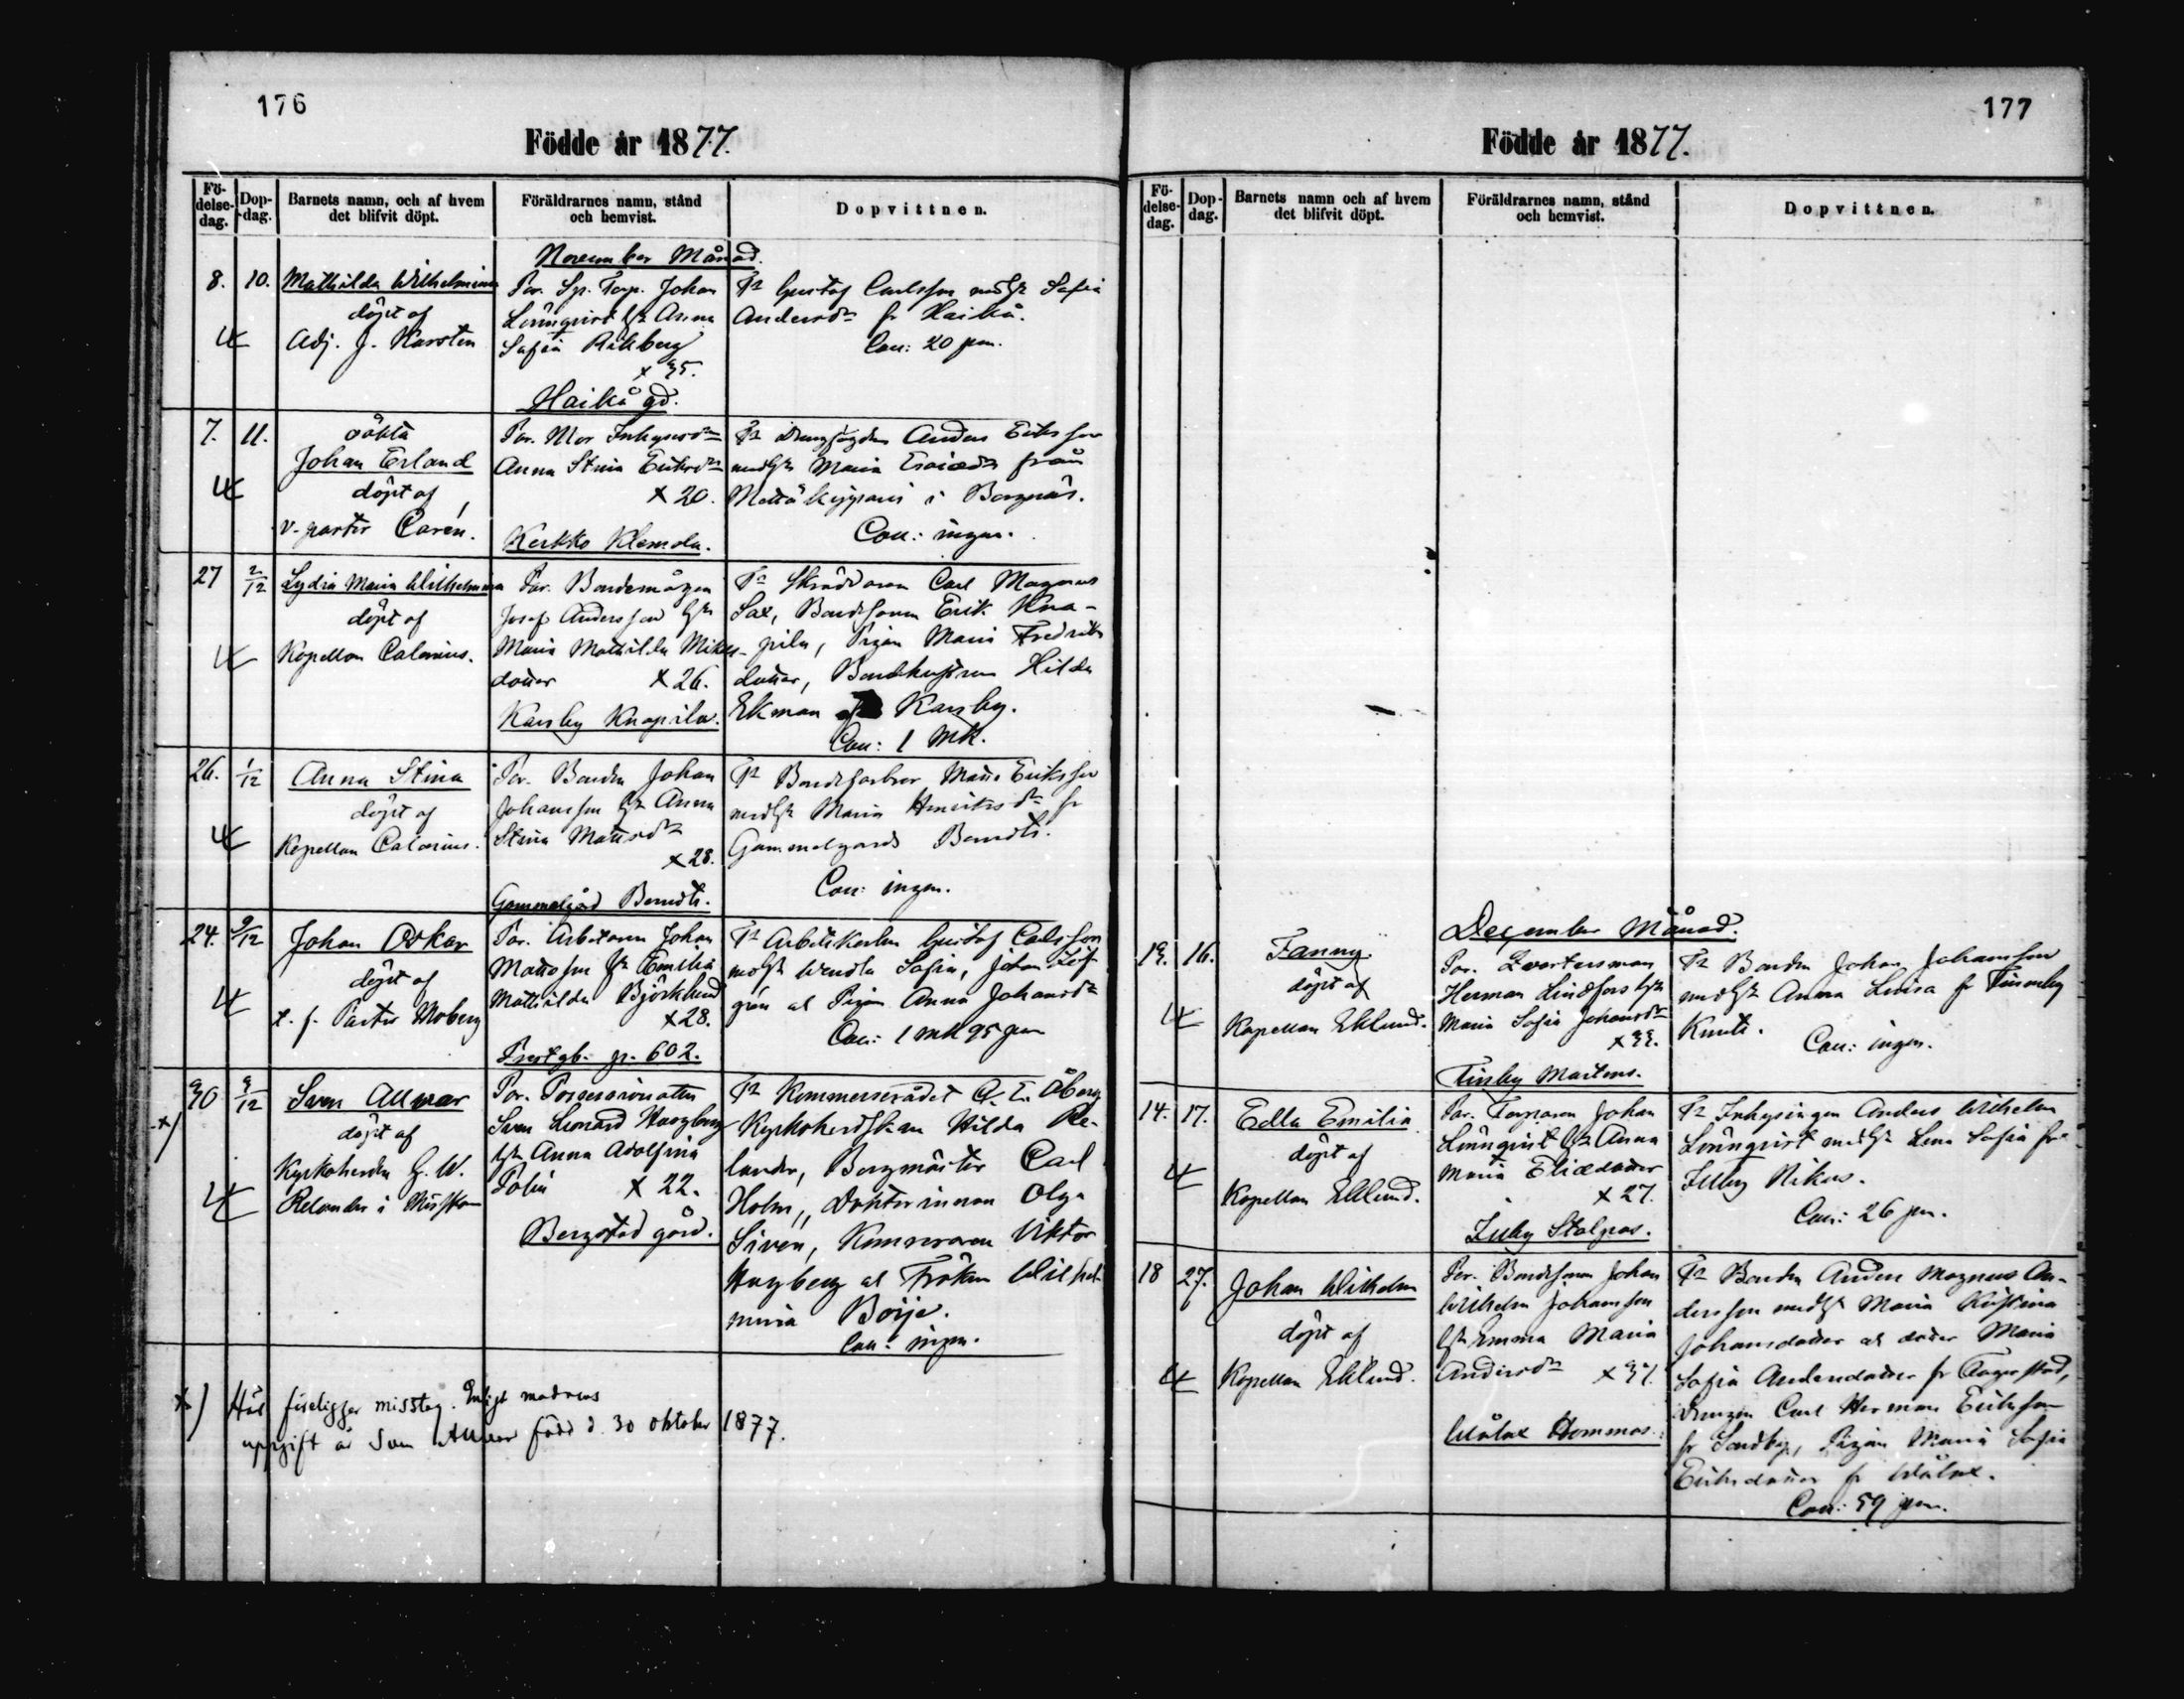 176
Födde år 1877.
Fö-
delse-
dag.
Dop-
dag.
Barnets namn, och af hvem
det blifvit döpt.
Föräldrarnes namn, stånd
och hemvist.
Dopvittnen.
November Månad.
8. 10. Mathilda Wilhelmina
döpt af
Adj. J. Karsten
Par. Sp. Torp. Johan
Lönnqvist hst Anna
Sofia Råkberg
x 35.
Haikå gd.
Tr Gustaf Carlsson mdhst Sofia
Andersdr fr Haikå.
Con: 20 pm.
7. 11. oäkta
Johan Erland
döpt af
v. pastor Carén.
Par. Mor Inhysesdr
Anna Stina Eriksdr
x 20.
Kerkko Klemola.
Tr Anders Eriksson
mdhst Maria från
i Borgnäs.
Con: ingen.
27 2/12 Lydia Maria Wilhelmina
döpt af
Kapellan Calonius.
Par. Bondemågen
Josef Andersson hst
Maria Mathilda Mikels-
dotter x 26.
Karsby Knapila.
Tr Skräddaren Carl Magnus
Sax, Bondsonen Erik Kna-
pila, Pigan Maria Fredriks
dotter, Bondhustrun Hilda
Ekman Karsby.
Con: 1 mk.
26. 1/12 Anna Stina
döpt af
Kapellan Calonius.
Par. Bonden Johan
Johansson hst Anna
Stina Mattsdr
x 28.
Gammelgård Berndts.
Tr Bondfarbror Matts Eriksson
mdhst Maria Henriksdr fr
Gammelgård Berndts.
Con: ingen.
24. 9/12 Johan Oskar
döpt af
t. f. Pastor Moberg
Par. Arbetaren Johan
Mattsson hst Emilia
Mathilda Björklund
x 28.
Prestgb. p. 602.
Tr Arbetskarlen Gustaf Carlsson
mdhst Wendla Sofia, Johan Löf
gren ol Pigan Anna Johansdr
Con: 1 mk 95 pm
x) 30 3/12 Sven Allwar
döpt af
Kyrkoherden G. W.
Relander i
Par. Possessionaten
Sven Leonard Hougberg
hst Anna Adolfina
Polin x 22.
Bergstad gård.
Tr Kommerserådet C. E. Åberg
Kyrkoherdskan Hilda Re-
lander, Borgmäster Carl
Holm, Doktorinnan Olga
Sirén, Viktor
Hougberg ol Fröken Wilhel-
mina Börje.
Con: ingen.
x) Här föreligger misstag. Enligt modrens
uppgift är Sven Allwar född d. 30 oktober 1877.
177
Födde år 1877.
Fö-
delse-
dag.
Dop-
dag.
Barnets namn och af hvem
det blifvit döpt.
Föräldrarnes namn, stånd
och hemvist.
Dopvittnen.
December Månad.
13. 16. Fanny
döpt af
Kapellan Eklund.
Par. Qvartersman
Herman Lindfors hst
Maria Sofia Johansdr
x 33.
Tinby Martens.
Tr Bonden Johan Johansson
mdhst Anna Lovisa fr Finnby
Knuts.
Con: ingen.
14. 17. Edla Emilia
döpt af
Kapellan Eklund.
Par. Torparen Johan
Lönnqvist hst Anna
Maria Eliædotter
x 27.
Illby Stolpas.
Tr Inhysingen Anders Wilhelm
Lönnqvist mdhst Lena Sofia fr
Illby Nikus.
Con: 26 pm.
18 27. Johan Wilhelm
döpt af
Kapellan Eklund.
Par. Bondsonen Johan
Wilhelm Johansson
hst Emma Maria
Andersdr x 31.
Wålax Hommas.
Tr Bonden Anders Magnus An-
dersson mdhst Maria Kristina
Johansdotter ol dotter Maria
Sofia Andersdotter fr Fagerstad,
Drengen Carl Herman Eriksson
fr Sondby, Pigan Maria Sofia
Eriksdotter fr Wålax.
Con: 59 pm.